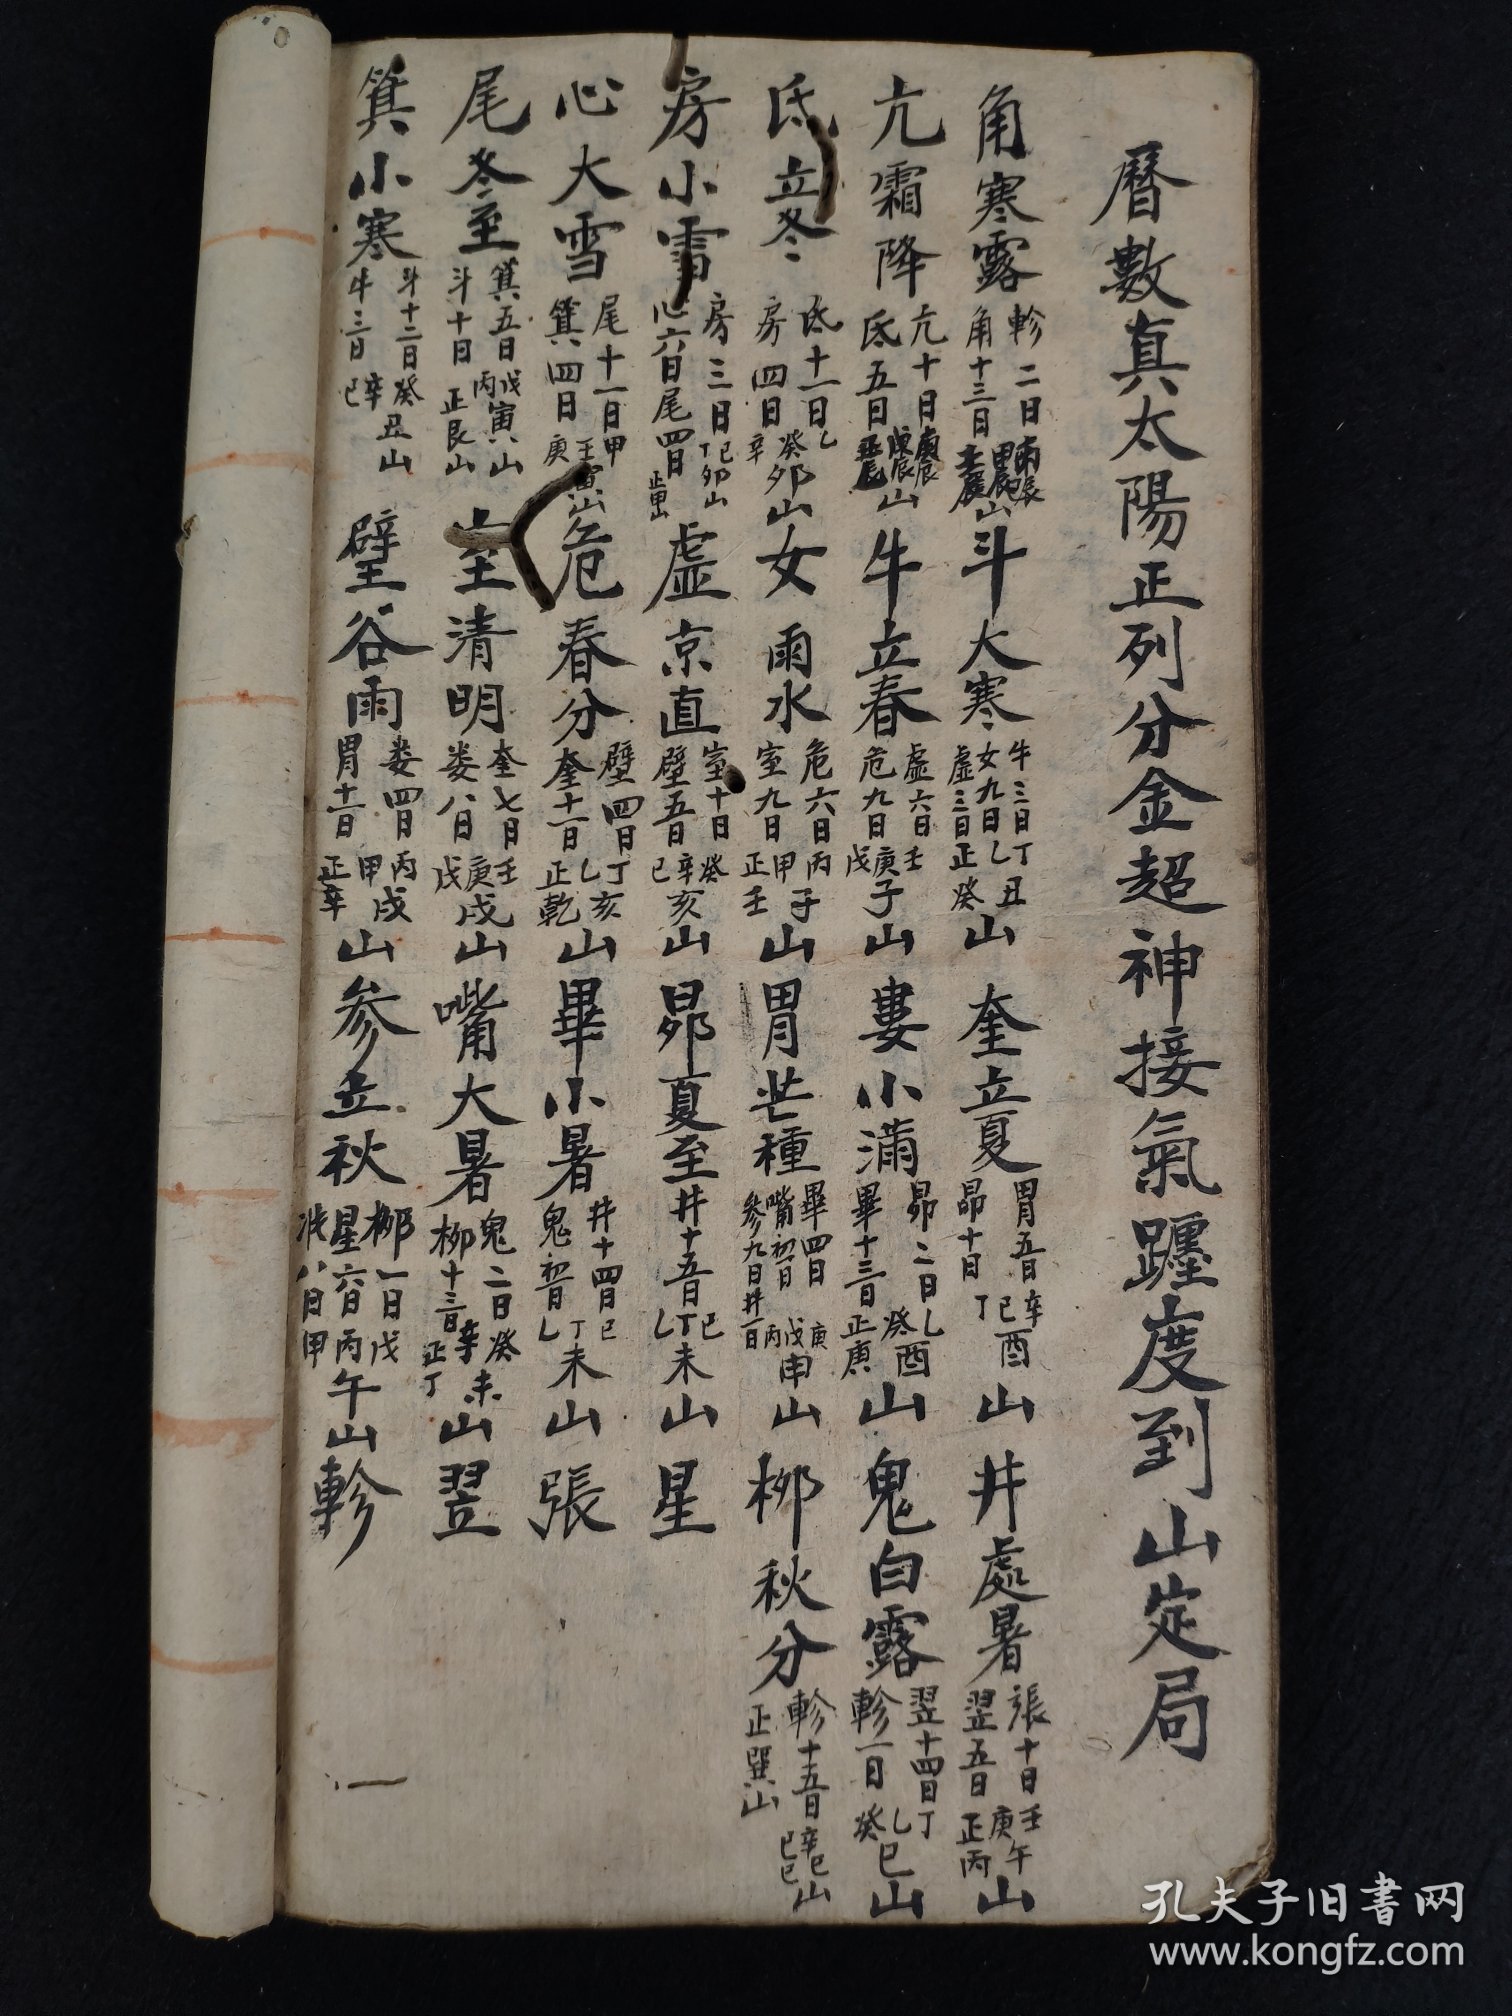 曆數真太陽正列分金超神接氣躔度到山定局
角寒露 軫二日 角十三日 山 斗大寒 牛三日丁 女九日乙丑 虛三日正癸 山 奎立夏 胃五日辛 昴十日丁己酉 山 井處暑 張十日壬 翌五日庚午 正丙 山
亢霜降 亢十日 氐五日 山 牛立春 虛六日壬 危九日戊庚子 山 婁小滿 昴二日乙 畢十三日癸酉 正庚 山 鬼白露 翌十四日丁 軫一日癸乙巳山
氐立冬 氐十一日乙 房四日辛癸卯山 女雨水 危六日丙 室九日甲子 正壬 山 胃芒種 畢四日庚 嘴初一日戊 參九日井一日丙申山 柳秋分 軫十五日辛巳山 正巽山
房小雪 房三日丁己卯山 心六日尾四日 虛京直 室十日癸 壁五日己辛亥山 昴夏至 井十五日乙丁己未山 星
心大雪 尾十一日甲 箕四日庚壬寅山 危春分 壁四日丁 奎十一日乙亥 正乾 山 畢小暑 井十四日己 鬼初一日乙丁未山 張
尾冬至 箕五日戊寅山 斗十日丙 正艮山 室清明 奎七日壬 婁八日戊庚戌山 嘴大暑 鬼二日癸未 柳十三日辛 正丁 山 翌
箕小寒 斗十二日癸丑山 牛三日己辛 壁谷雨 娄四日丙戌 胃十一日甲 正辛 山 參立秋 柳一日戊 星六日丙午山 八日甲 軫
孔夫子旧书网
www.kongfz.com